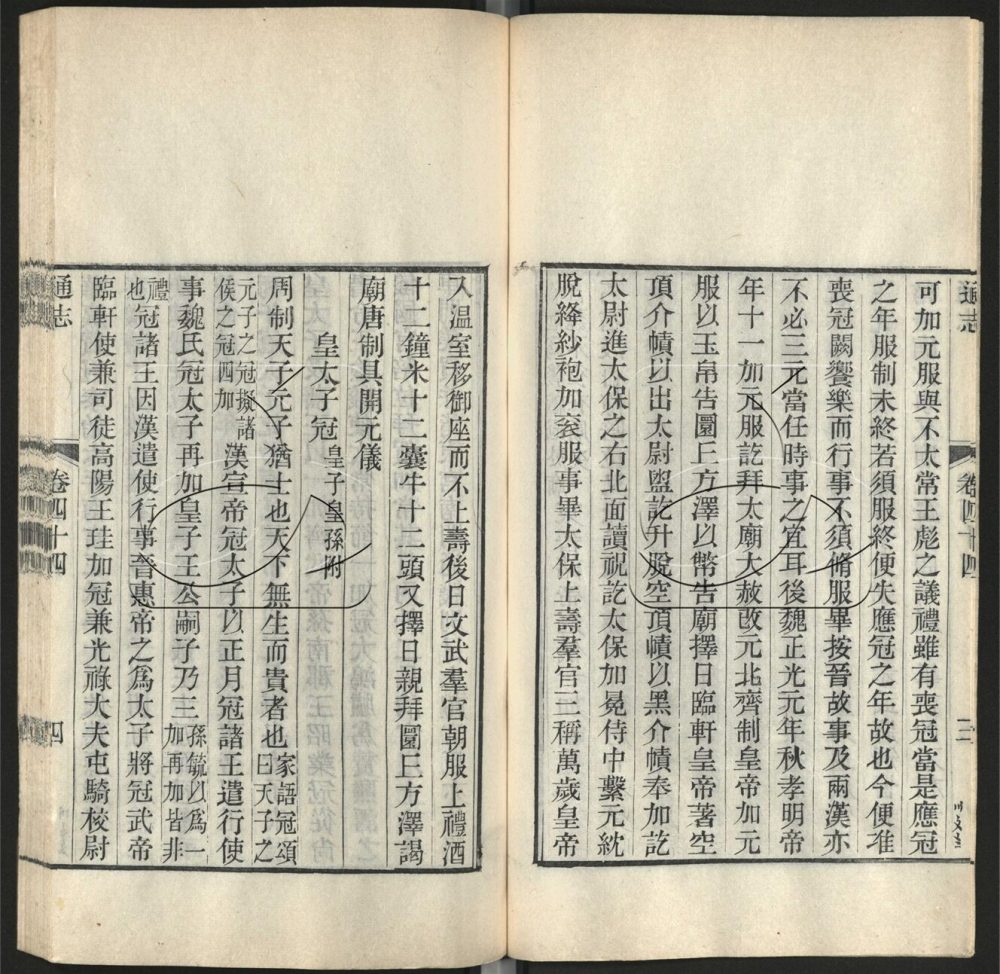 通志
卷四十四
三
可加元服與不太常王彪之議禮雖有喪冠當是應冠
之年服制未終若須服終便失應冠之年故也今便准
喪冠闕饗樂而行事不須脩服畢按晉故事及兩漢亦
不必三元當任時事之宜耳後魏正光元年秋孝明帝
年十一加元服訖拜太廟大赦改元北齊制皇帝加元
服以玉帛告圜𠀉方澤以幣告廟擇日臨軒皇帝著空
頂介幘以出太尉盥訖升脫空頂幘以黑介幘奉加訖
太尉進太保之右北面讀祝訖太保加冕侍中繫元紞
脫絳紗袍加袞服事畢太保上壽羣官三稱萬歲皇帝
入溫室移御座而不上壽後日文武羣官朝服上禮酒
十二鐘米十二囊牛十二頭又擇日親拜圜𠀉方澤謁
廟唐制具開元儀
皇太子冠 皇子皇孫附
周制天子元子猶士也天下無生而貴者也 家語冠頌曰天子之
元子之冠擬諸侯之冠四加 漢宣帝冠太子以正月冠諸王遣行使
事魏氏冠太子再加皇子王公嗣子乃三 孫毓以為一加再加皆非
禮也 冠諸王因漢遣使行事晉惠帝之為太子將冠武帝
臨軒使兼司徒高陽王珪加冠兼光祿大夫屯騎校尉
通志
卷四十四
四